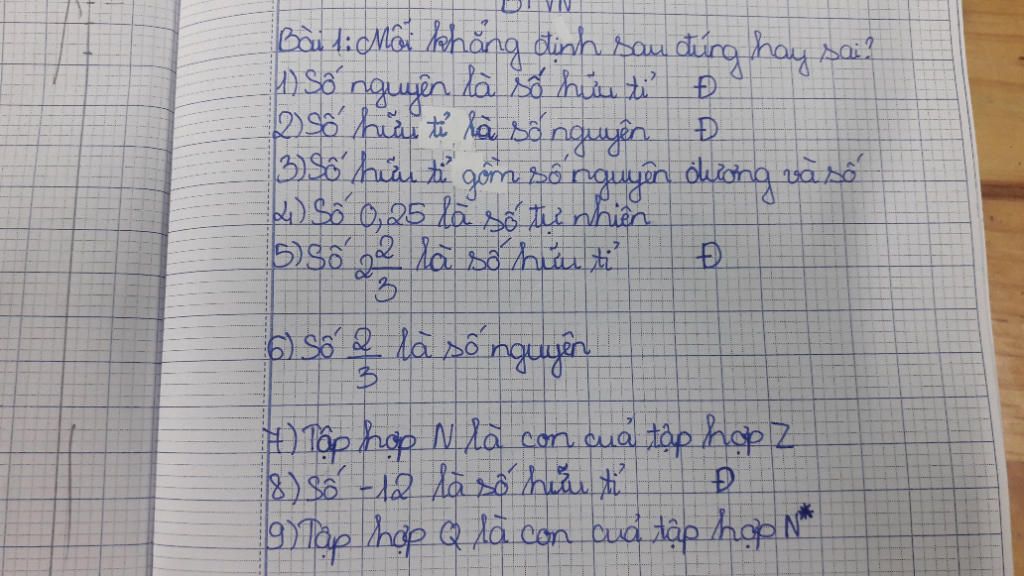 BTVN
Bài 1: Mỗi khẳng định sau đúng hay sai?
1) Số nguyên là số hữu tỉ Đ
2) Số hữu tỉ là số nguyên Đ
3) Số hữu tỉ gồm số nguyên dương và số
4) Số 0,25 là số tự nhiên
5) Số 2 2/3 là số hữu tỉ Đ
6) Số 2/3 là số nguyên
7) Tập hợp N là con cuả tập hợp Z
8) Số -12 là số hữu tỉ Đ
9) Tập hợp Q là con cuả tập hợp N*